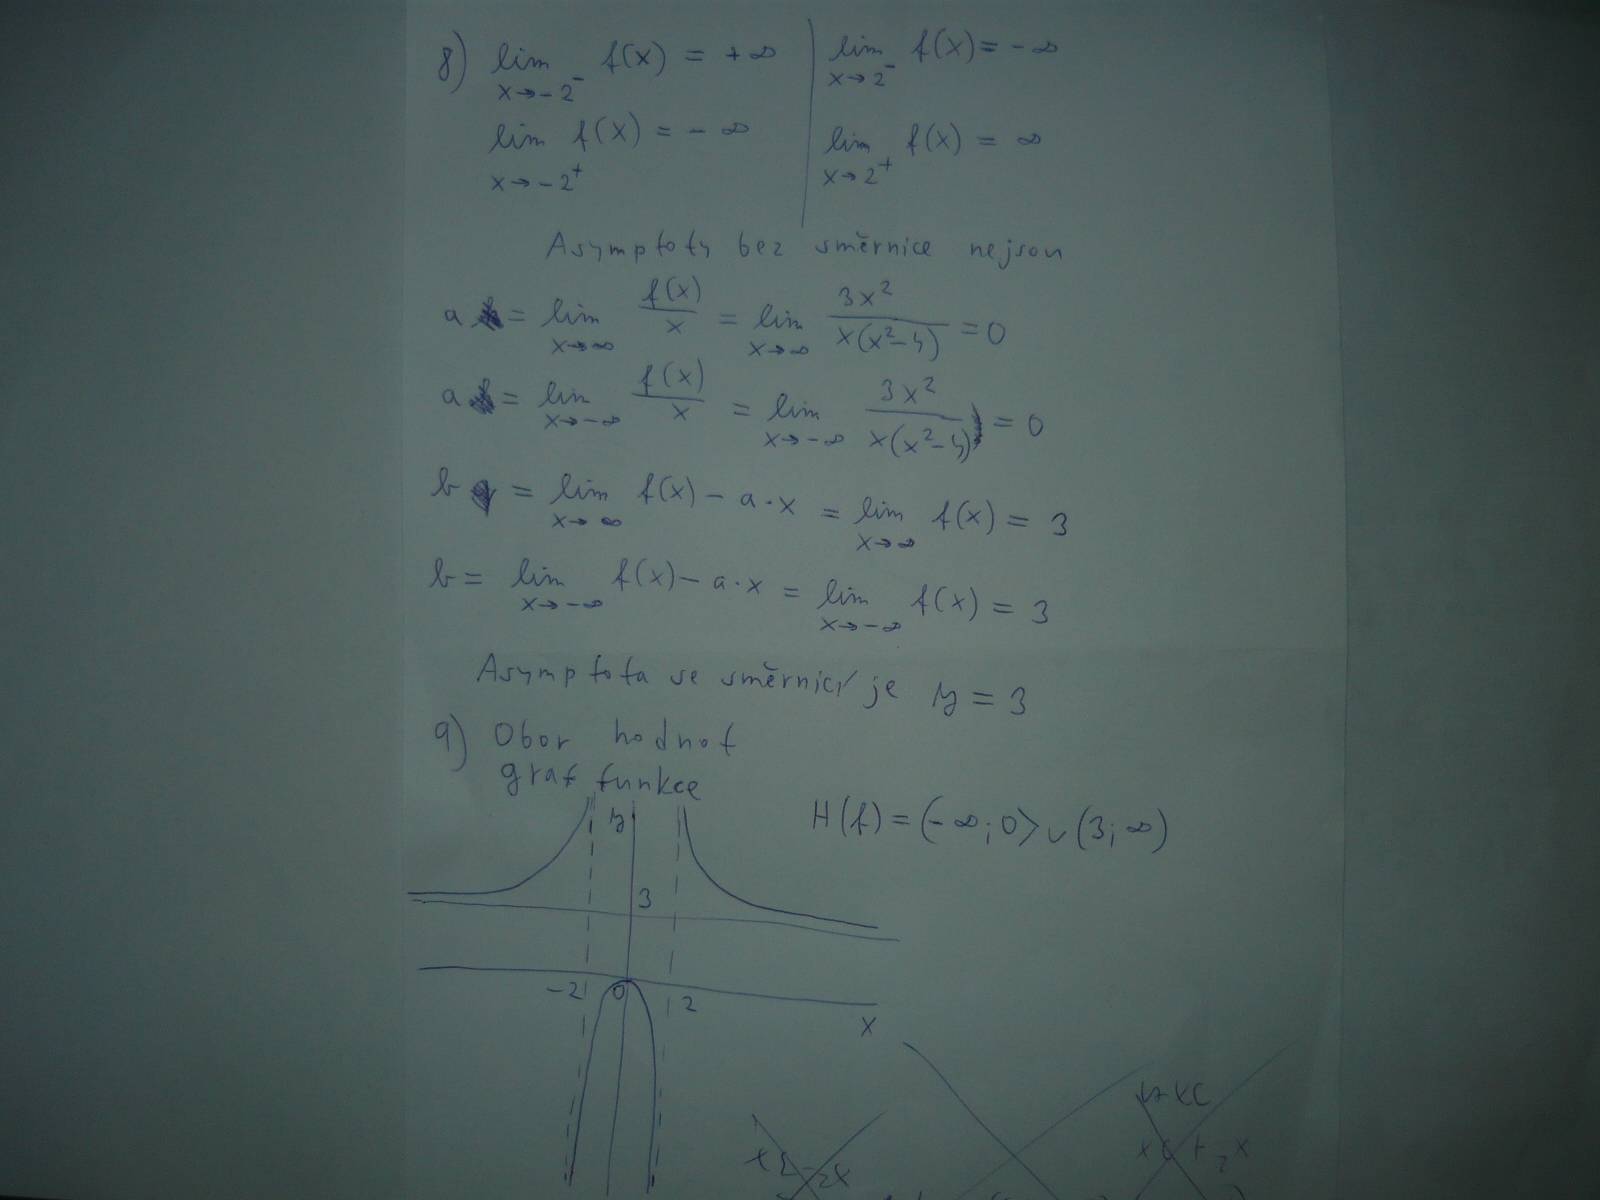 8) lim x→-2⁻ f(x) = +∞ | lim x→2⁻ f(x) = -∞
lim x→-2⁺ f(x) = -∞ | lim x→2⁺ f(x) = ∞
Asymptoty bez směrnice nejsou
a = lim x→∞ f(x)/x = lim x→∞ 3x²/x(x²-4) = 0
a = lim x→-∞ f(x)/x = lim x→-∞ 3x²/x(x²-4) = 0
b = lim x→∞ f(x) - a·x = lim x→∞ f(x) = 3
b = lim x→-∞ f(x) - a·x = lim x→-∞ f(x) = 3
Asymptota se směrnicí je y = 3
9) Obor hodnot
graf funkce
H(f) = (-∞;0> ∪ (3;∞)
y
3
-2 0 2
x